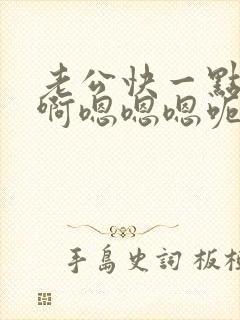 老公快一點
啊嗯嗯嗯呃
手島史詞 板